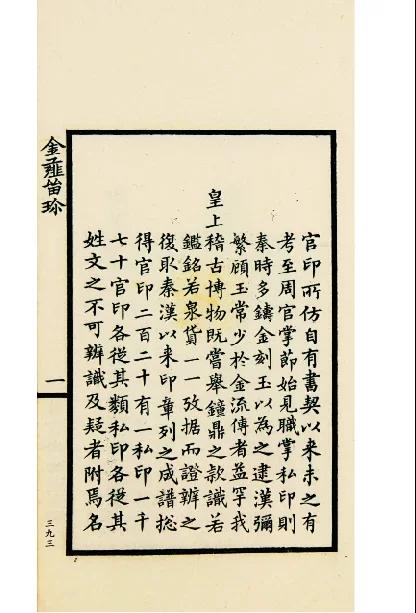 官印所仿自有書契以来未之有
考至周官掌節始見職掌私印則
秦時多鑄金刻玉以為之逮漢彌
繁顧玉常少於金流傳者益罕我
皇上稽古博物既嘗舉鐘鼎之款識若
鑑銘若泉貨一一攷据而證辨之
復取秦漢以来印章列之成譜捴
得官印二百二十有一私印一千
七十官印各從其類私印各從其
姓文之不可辨識及疑者附焉名
金薤留珍
一
三九三